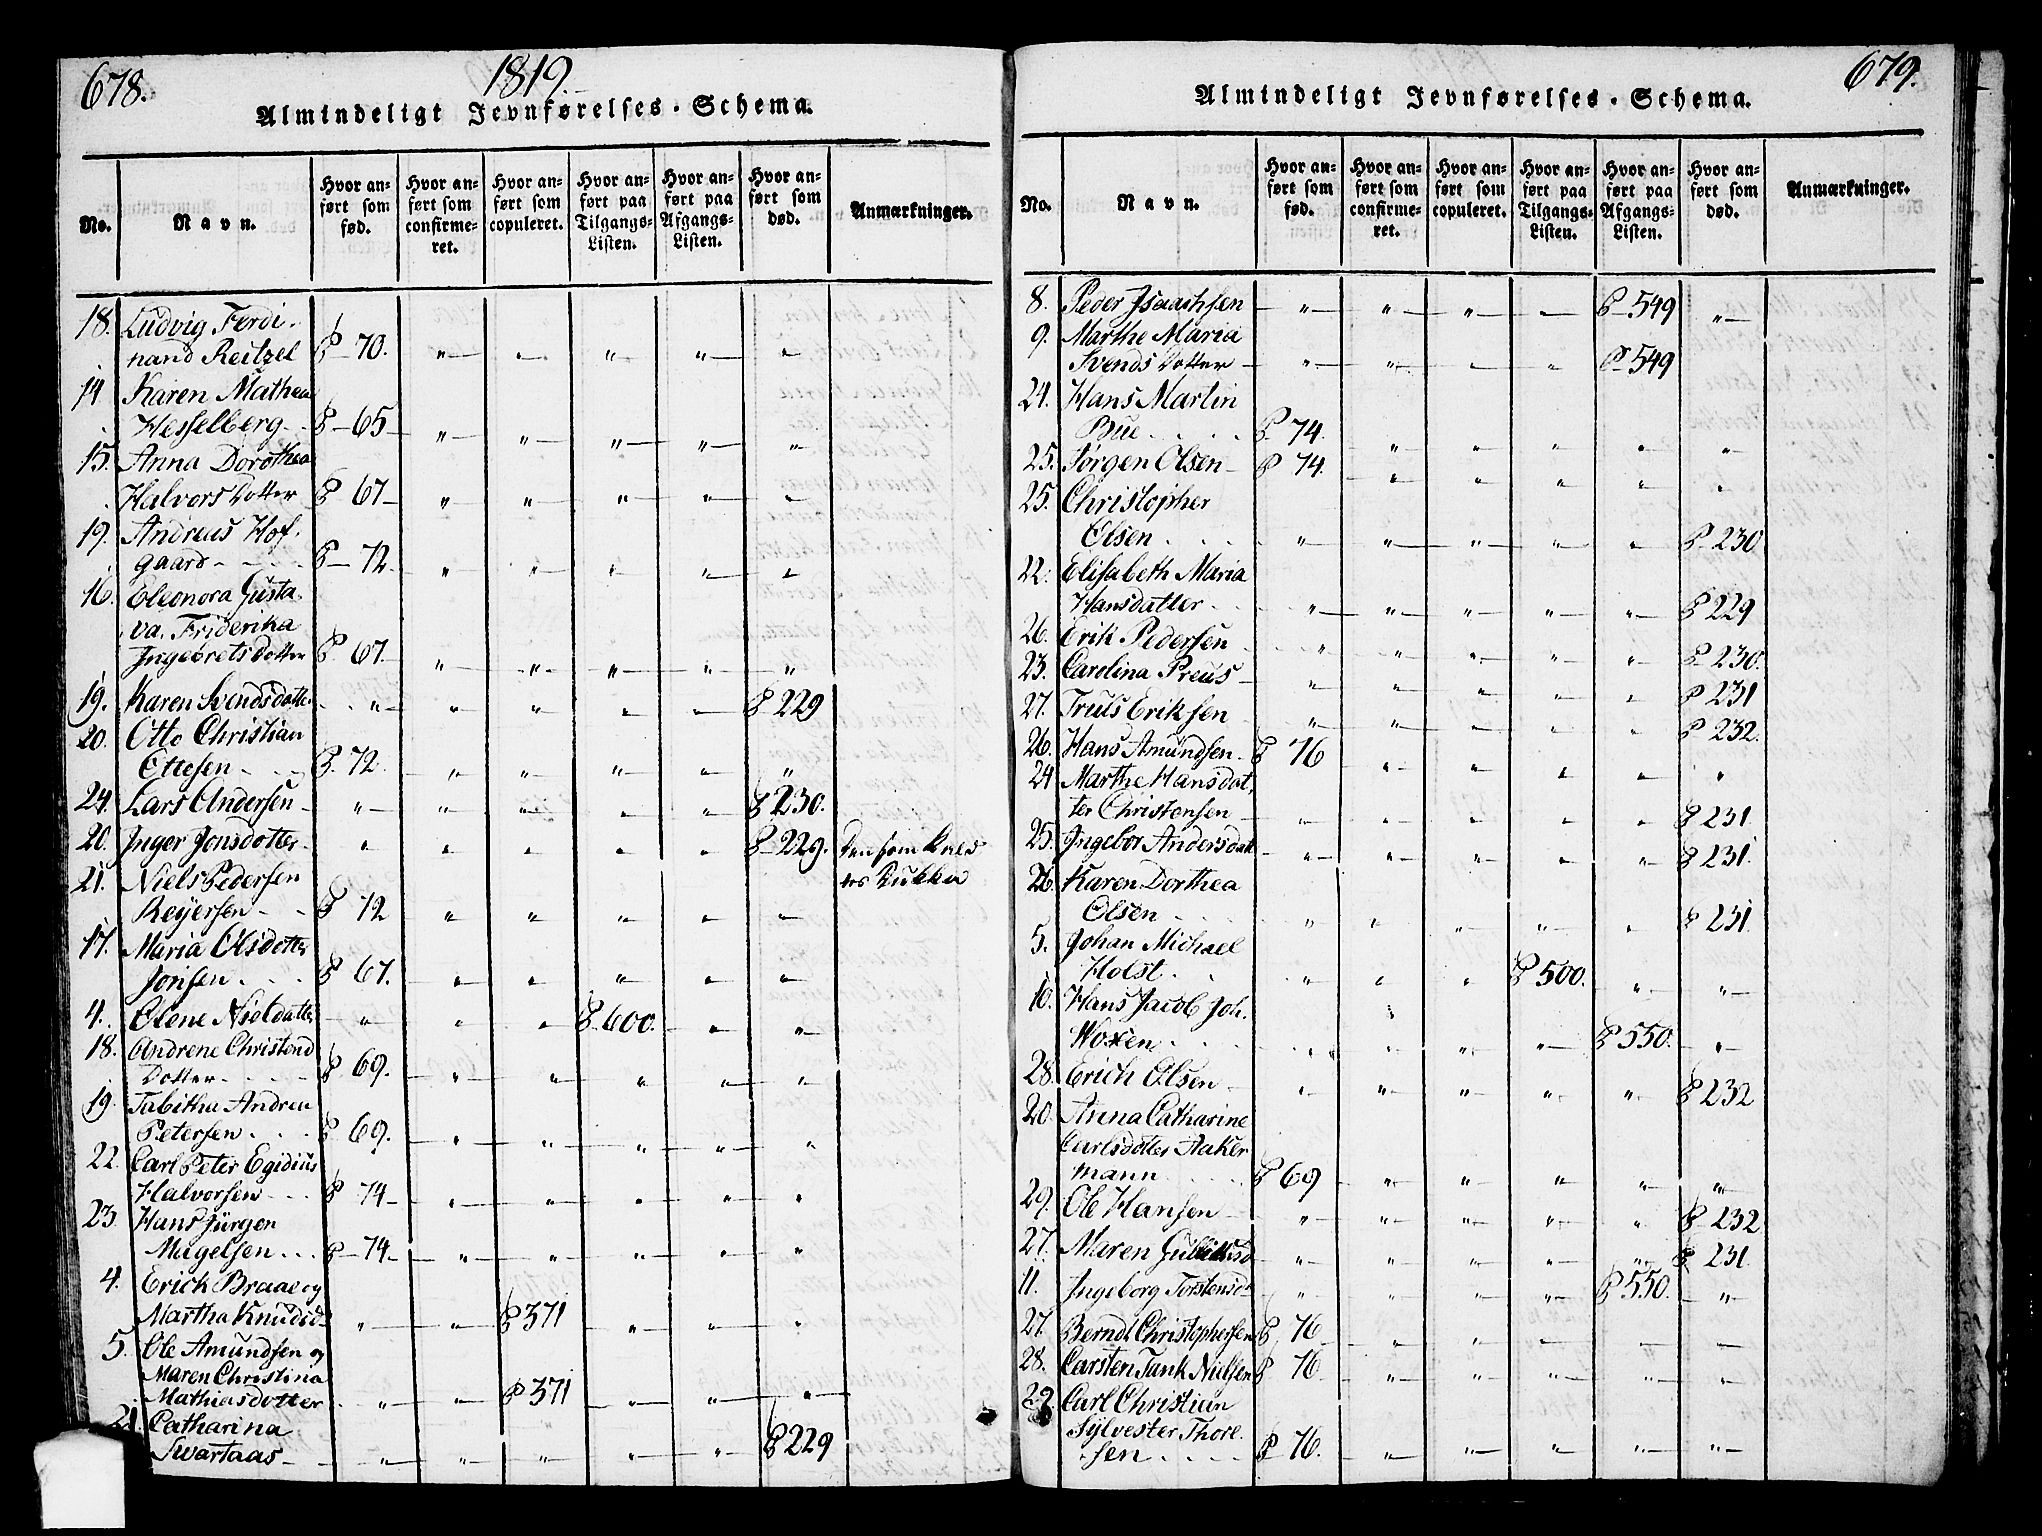 678.
1819.
Almindeligt Jevnførelses-Schema.
No. Navn. Hvor anført som fød. Hvor anført som confirmeret. Hvor anført som copuleret. Hvor anført paa Tilgangs-Listen. Hvor anført paa Afgangs-Listen. Hvor anført som død. Anmærkninger.
18. Ludvig Ferdi-
nand Reitzel P 70. " " " " "
14 Karen Mathea
Hesselberg P 65 " " " " "
15. Anna Dorothea
Halvors Dotter P 67 " " " " "
19. Andreas Hof-
gaard P 72. " " " " "
16. Eleonora Gusta-
va. Friderika
Dotter P 67. " " " " "
19. Karen Svendsdotter " " " " " P 229
20. Otto Christian
Ottesen P. 72. " " " " "
24. Lars Andersen " " " " " P 230.
20. Inger Jonsdotter " " " " " P 229.
21. Niels Pedersen
Reyersen P 72 " " " " "
17. Maria Olsdotter
Jonsen P 67. " " " " "
4. Olene Nielsdatter " " " P. 600. " "
18. Andrene Christend
Dotter P 69. " " " " "
19. Tabitha Andrea
Petersen P 69. " " " " "
22. Carl Peter Egidius
Halvorsen P 74 " " " " "
23. Hans Jürgen
Magelsen P 74 " " " " "
4. Erick Braae og
Martha Knudsd " " P 371 " " "
5. Ole Amundsen og
Maren Christina
Mathiasdotter " " P 371 " " "
21. Catharina
Svartaas " " " " " P 229
679.
Almindeligt Jevnførelses-Schema.
No. Navn. Hvor anført som fød. Hvor anført som confirmeret. Hvor anført som copuleret. Hvor anført paa Tilgangs-Listen. Hvor anført paa Afgangs-Listen. Hvor anført som død. Anmærkninger.
8. Peder Isaachsen " " " " P 549 "
9. Marthe Maria
Svends Dotter " " " " P 549
24. Hans Martin
Bue P. 74. " " " " "
25. Jørgen Olsen P 74. " " " " "
25. Christopher
Olsen " " " " " P 230
22. Elisabeth Maria
Hansdatter " " " " " P 229
26. Erik Pedersen " " " " " P 230.
23. Carolina Preus " " " " " P 231
27. Truls Eriksen " " " " " P 232.
26. Hans Amundsen P 76 " " " " "
24 Marthe Hansdat-
ter Christensen " " " " " P 231
25. Ingebor Andersdatt " " " " " P 231.
26. Karen Dorthea
Olsen " " " " " P 231.
5. Johan Michael
Holst " " " P 500. " "
10. Hans Jacob Joh.
Woxen " " " " P 550. "
28. Erich Olsen " " " " " P 232
20. Anna Catharine
Carlsdotter Aaker
mann P 69 " " " " "
29. Ole Hansen " " " " " P 232
27. Maren " " " " " P 231
11. Ingeborg Torstensd " " " " P 550. "
27. Berndt Christophersen P 76 " " " " "
28. Carsten Tank Nielsen P 76. " " " " "
29 Carl Christian
Sylvester Thore-
sen P 76. " " " " "